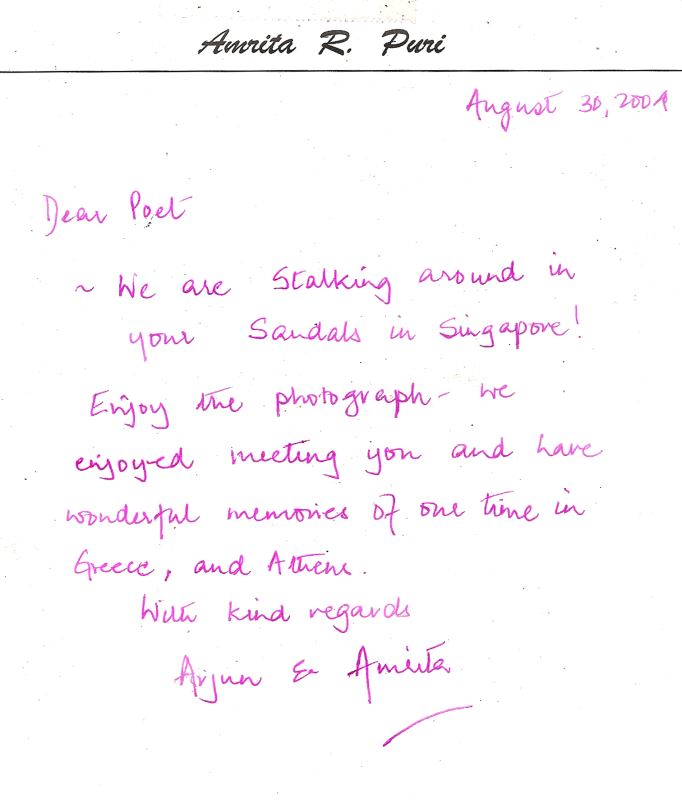 Amrita R. Puri
August 30, 2001
Dear Poet
~ We are Stalking around in
your Sandals in Singapore!
Enjoy the photograph - we
enjoyed meeting you and have
wonderful memories of our time in
Greece, and Athens.
With kind regards
Arjun & Amrita